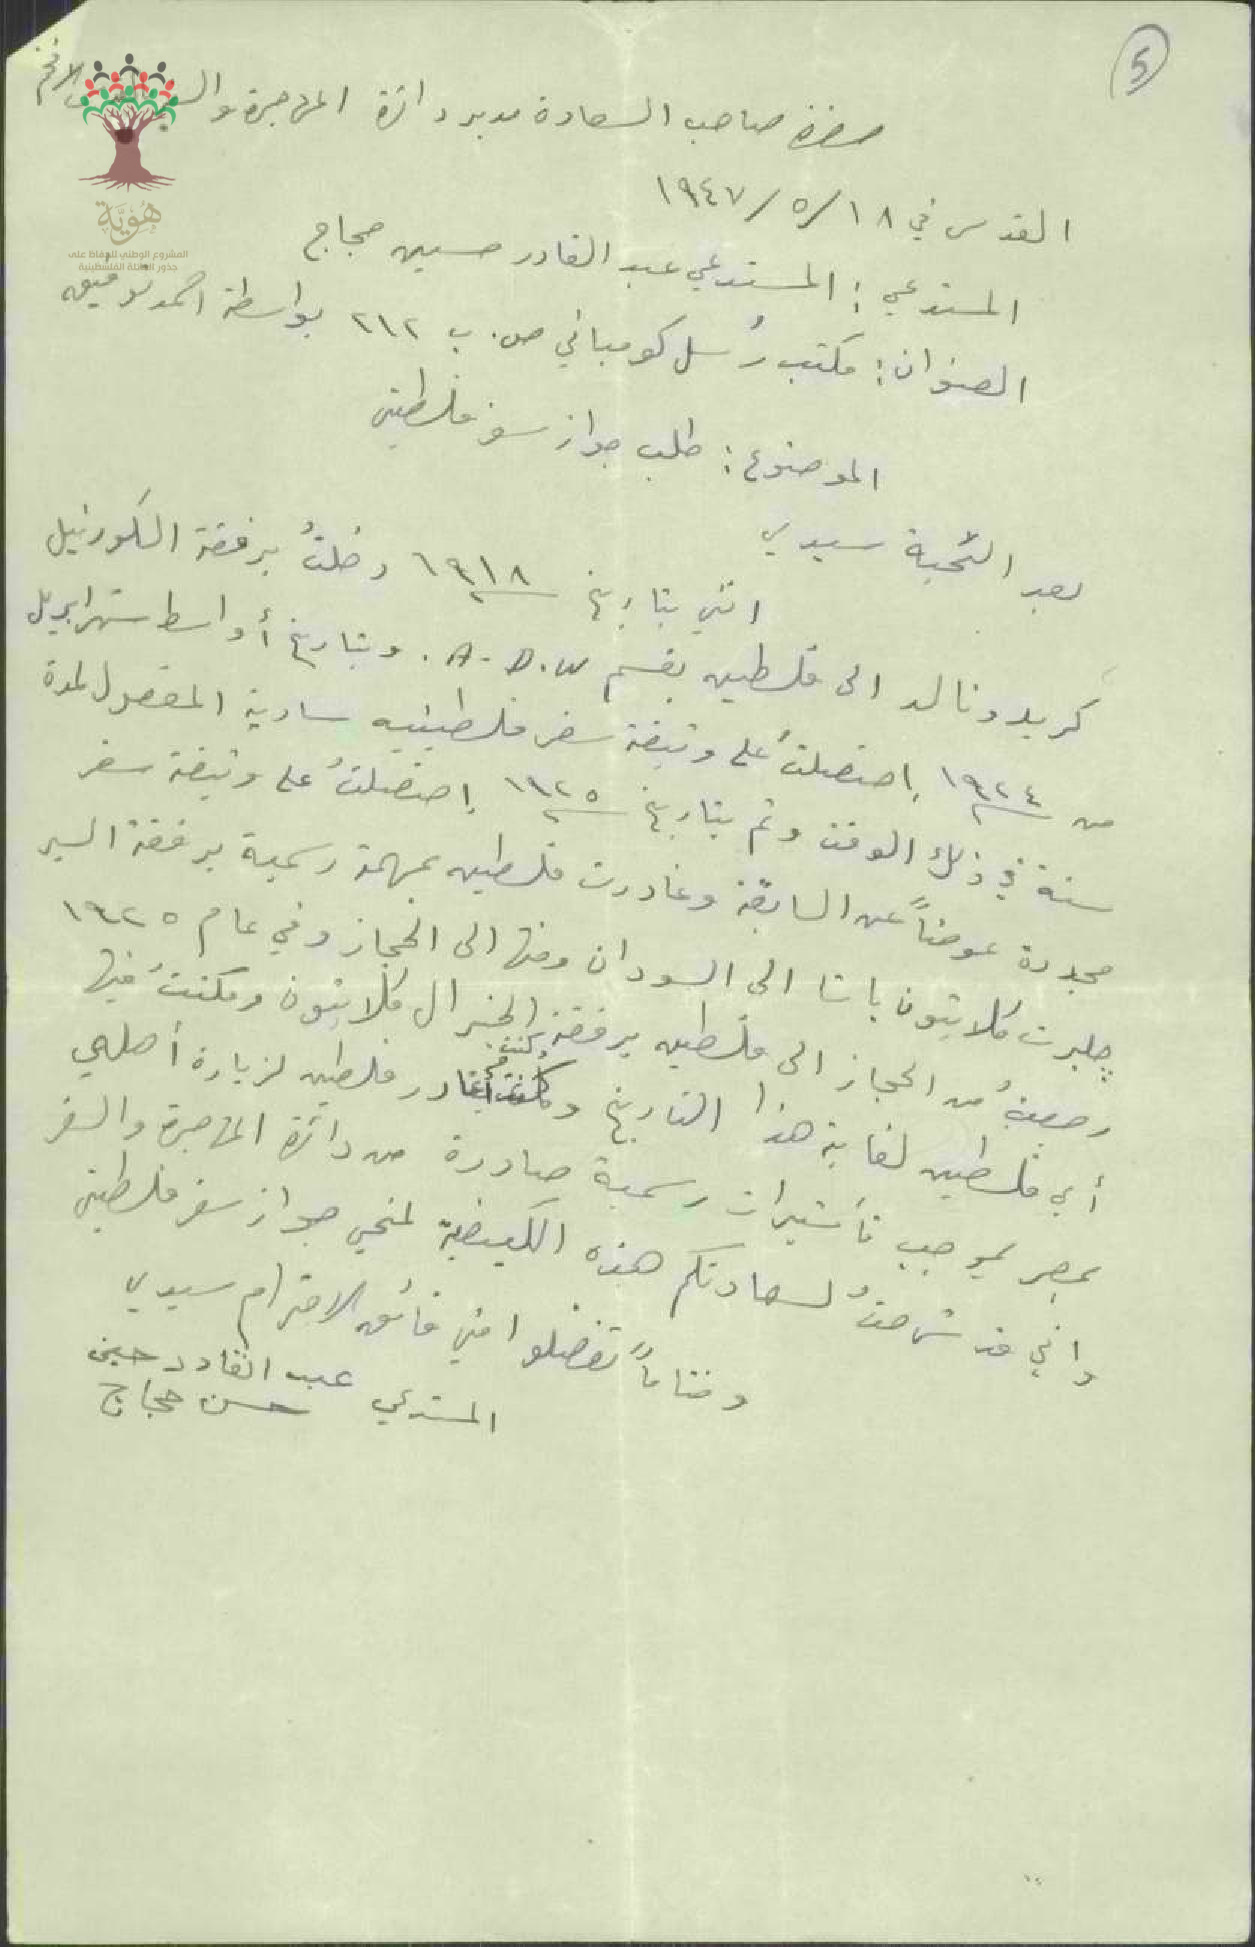 5
حضرة صاحب السعادة مدير دائرة المهاجرة والسفر الافخم
هُوِيَّة
المشروع الوطني للحفاظ على
جذور العائلة الفلسطينية
القدس في ١٨/٥/١٩٤٧
المستدعي : المستدعي عبد القادر حسين حجاج
العنوان : مكتب رُسل كومباني ص. ب ٢١٢ بواسطة احمد توفيق
الموضوع : طلب جواز سفر فلسطيني
بعد التحية سيدي
انني بتاريخ ١٩١٨ دخلتُ برفقة الكورنيل
كريدونالد الى فلسطين بقسم A. D. W. وبتاريخ أواسط شهر ابريل
من ١٩٢٤ إحتصلتُ على وثيقة سفر فلسطينيه سارية المفعول لمدة
سنة في ذلك الوقت وثم بتاريخ ١٩٢٥ إحتصلتُ على وثيقة سفر
مجددة عوضاً عن السابقة وغادرت فلسطين بمهمة رسمية برفقة السير
چلبرت كلايتون باشا الى السودان ومنها الى الحجاز وفي عام ١٩٢٥
رجعتُ من الحجاز الى فلسطين برفقة الجنرال كلايتون ومكثتُ فيها
أي فلسطين لغاية هذا التاريخ وكنت أغادر فلسطين لزيارة أهلي
بمصر بموجب تأشيرات رسمية صادرة من دائرة المهاجرة والسفر
واني قد شرحتُ لسعادتكم هذه الكيفية لمنحي جواز سفر فلسطيني
وختاماً تفضلوا مني فائق الاحترام سيدي
المستدعي عبد القادر حسين
حسن حجاج